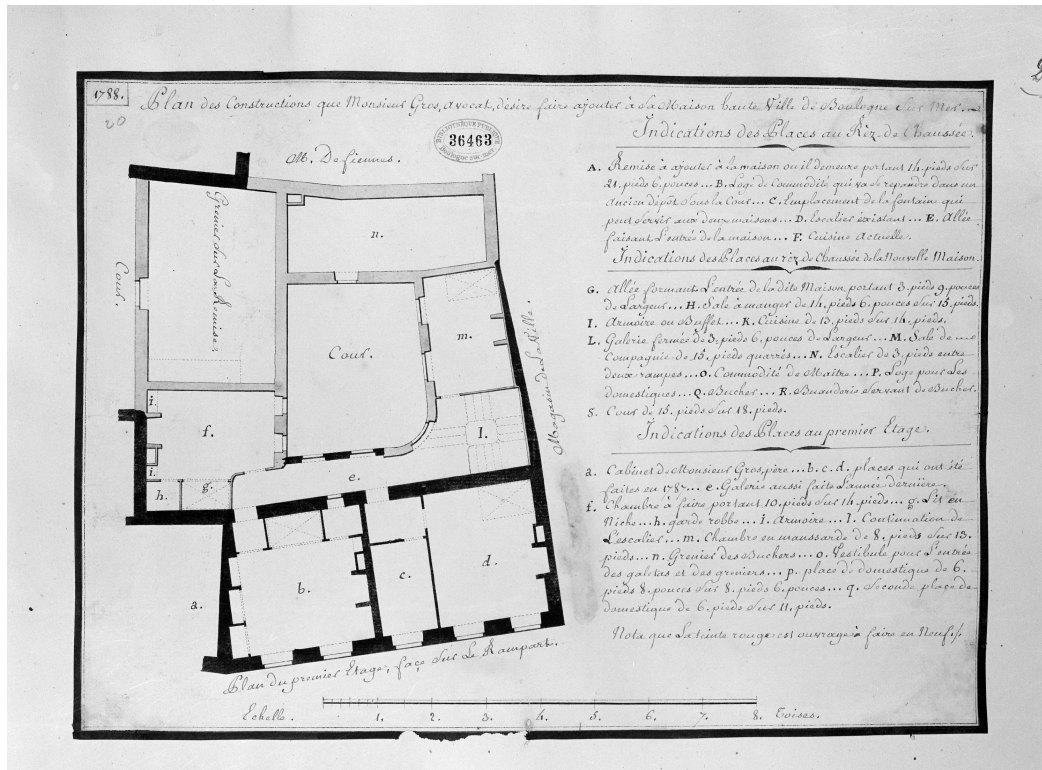 1788.
Plan des Constructions que Monsieur Gros, avocat, désire faire ajouter à Sa Maison haute Ville de Boulogne Sur Mer
20
BIBLIOTHÈQUE PUBLIQUE
36463
Boulogne sur mer
M. De fiennes.
Grenier Sur La Remise.
Cour.
n.
Cour.
m.
Magazin de La Ville.
i.
f.
l.
i.
h.
g.
e.
a.
b.
c.
d.
Plan du premier Etage, façe Sur Le Rampart.
Echelle. 1. 2. 3. 4. 5. 6. 7. 8. Toises.
Indications des Places au Réz de Chaussée.
A. Remise à ajouter à la maison ou il demeure portant 14. pieds Sur
21. pieds 6. pouces... B. Loge de Commodité qui va Se repandre dans un
ancien dépôt Sous la Cour... C. Emplacement de la fontain qui
peut Servir aux deux maisons... D. Escalier éxistant... E. Allée
faisant L'entrée de la maison... F. Cuisine Actuelle.
Indications des Places au réz de Chaussée de la Nouvelle Maison.
G. Allée formant L'entrée de la dite Maison portant 3. pieds 9. pouces
de Largeur... H. Sale à manger de 14. pieds 6. pouces Sur 15. pieds.
I. Armoire ou Buffet... K. Cuisine de 13. pieds Sur 14. pieds.
L. Galerie fermée de 3. pieds 6. pouces de Largeur... M. Sale de
Compagnie de 15. pieds quarrés... N. Escalier de 3. pieds entre
deux rampes... O. Commodité de Maitre... P. Loge pour Les
domestiques... Q. Bucher... R. Buanderie Servant de Bucher.
S. Cour de 15. pieds Sur 18. pieds.
Indications des Places au premier Etage.
a. Cabinet de Monsieur Gros, père... b. c. d. places qui ont été
faites en 1787... e. Galerie aussi faite L'année dernière.
f. Chambre à faire portant 10. pieds Sur 14. pieds... g. Lit en
Niche... h. garde robbe... i. Armoire... l. Continuation de
L'escalier... m. Chambre en manssarde de 8. pieds Sur 13.
pieds... n. Grenier des Buchers... o. Vestibule pour L'entrée
des galetas et des greniers... p. place de domestique de 6.
pieds 8. pouces Sur 8. pieds 6. pouces... q. Seconde place de
domestique de 6. pieds Sur 11. pieds.
Nota que La teinte rouge est ouvrage à faire en Neuf./.